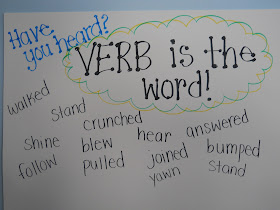 Have you heard?
VERB is the
word!
walked
stand
crunched
shine
blew
hear
answered
follow
pulled
joined
bumped
yawn
stand